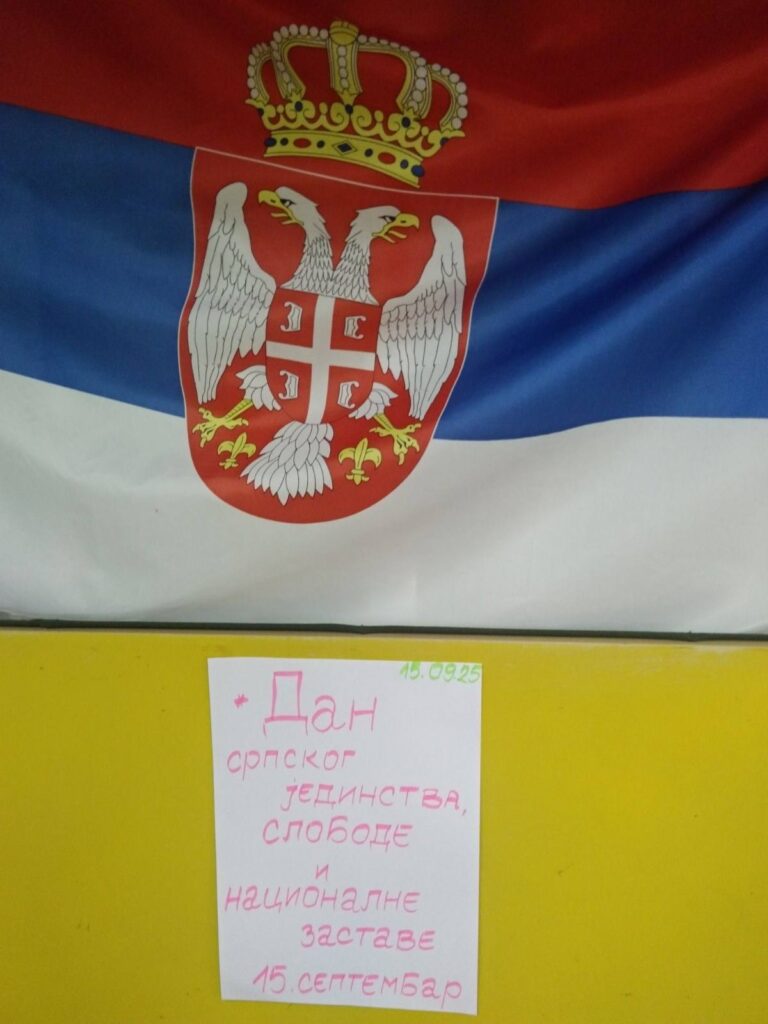 15.09.25
* Дан
српског
јединства,
слободе
и
националне
заставе
15. септембар